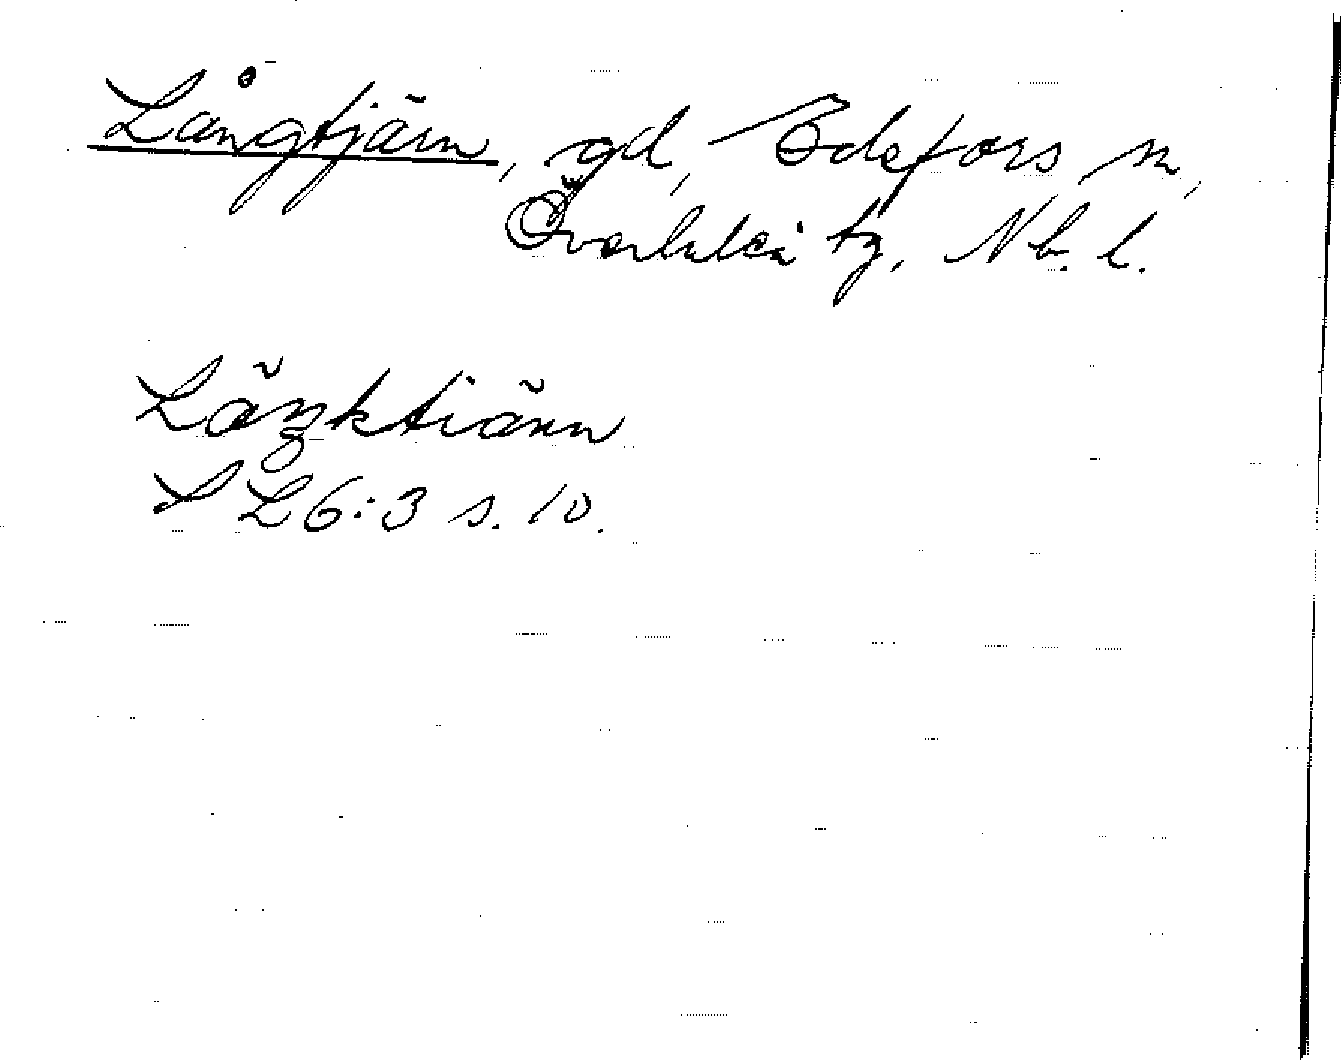 Långtjärn, gd, Edefors sn,
Överluleå tg, Nb. l.
Läŋktiänn
S L 6:3 s. 10.